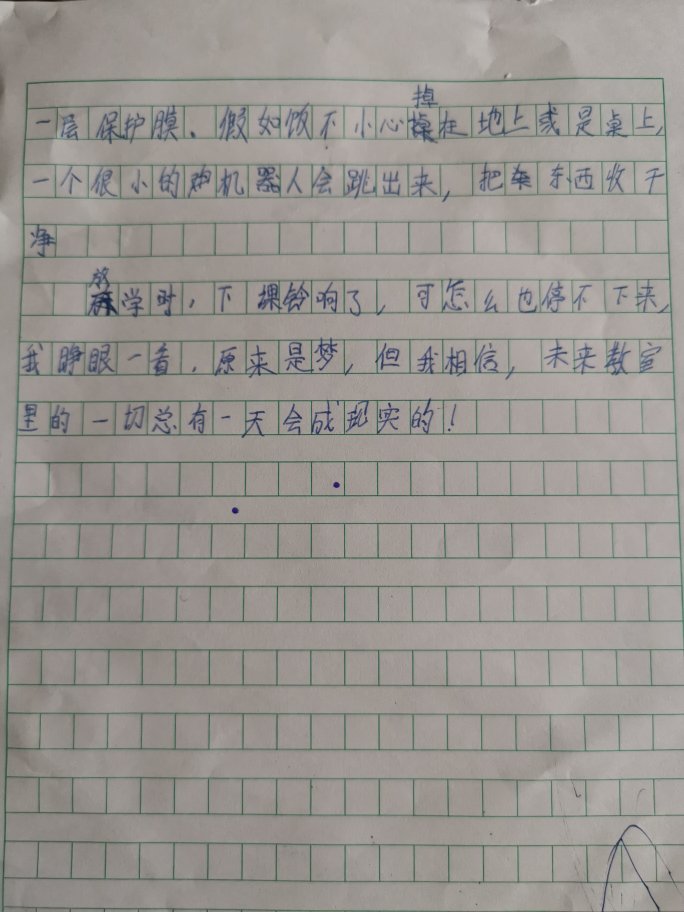 一层保护膜。假如饭不小心掉在地上或是桌上,
一个很小的机器人会跳出来,把东西收干
净
放学时,下课铃响了,可怎么也停不下来,
我睁眼一看,原来是梦,但我相信,未来教室
里的一切总有一天会成现实的!